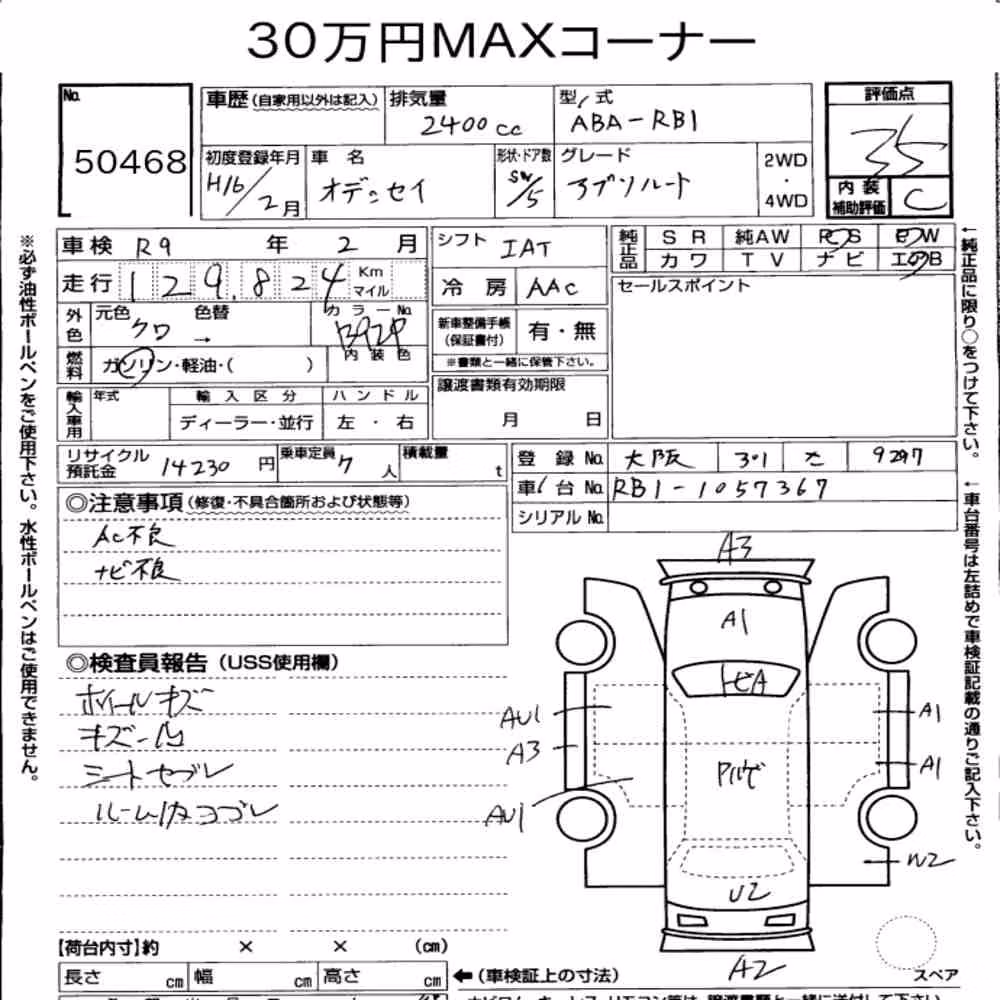 30万円MAXコーナー
No. 50468
車歴(自家用以外は記入) 排気量 2400cc 型式 ABA-RB1
評価点 35
初度登録年月 H16/2月 車名 オデッセイ 形状・ドア数 SW/5 グレード アブソルート 2WD・4WD
内装補助評価 C
車検 R9年2月 シフト IAT 純正品 SR 純AW PS PW
カワ TV ナビ エアB
走行 129,824 Km マイル 冷房 AAC セールスポイント
外色 元色 クロ 色替 → カラーNo. B92P
新車整備手帳(保証書付) 有・無
※書類と一緒に保管下さい。
燃料 ガソリン・軽油・( ) 内装色
譲渡書類有効期限 月 日
輸入車用 年式 輸入区分 ディーラー・並行 ハンドル 左・右
リサイクル預託金 14230円 乗車定員 7人 積載量 t
登録No. 大阪 301 9297
車台No. RB1-1057367
シリアルNo.
◎注意事項(修復・不具合箇所および状態等)
AC不良
ナビ不良
◎検査員報告(USS使用欄)
ホイールキズ
キズ凹
シートヤブレ
ルーム内ヨゴレ
A3
A1
トビA
AU1
A3
AU1
A1
A1
W2
U2
A2
スペア
【荷台内寸】約 × × (cm)
長さ cm 幅 cm 高さ cm ←(車検証上の寸法)
※必ず油性ボールペンをご使用下さい。水性ボールペンはご使用できません。
←純正品に限り○をつけて下さい。
←車台番号は左詰めで車検証記載の通りご記入下さい。